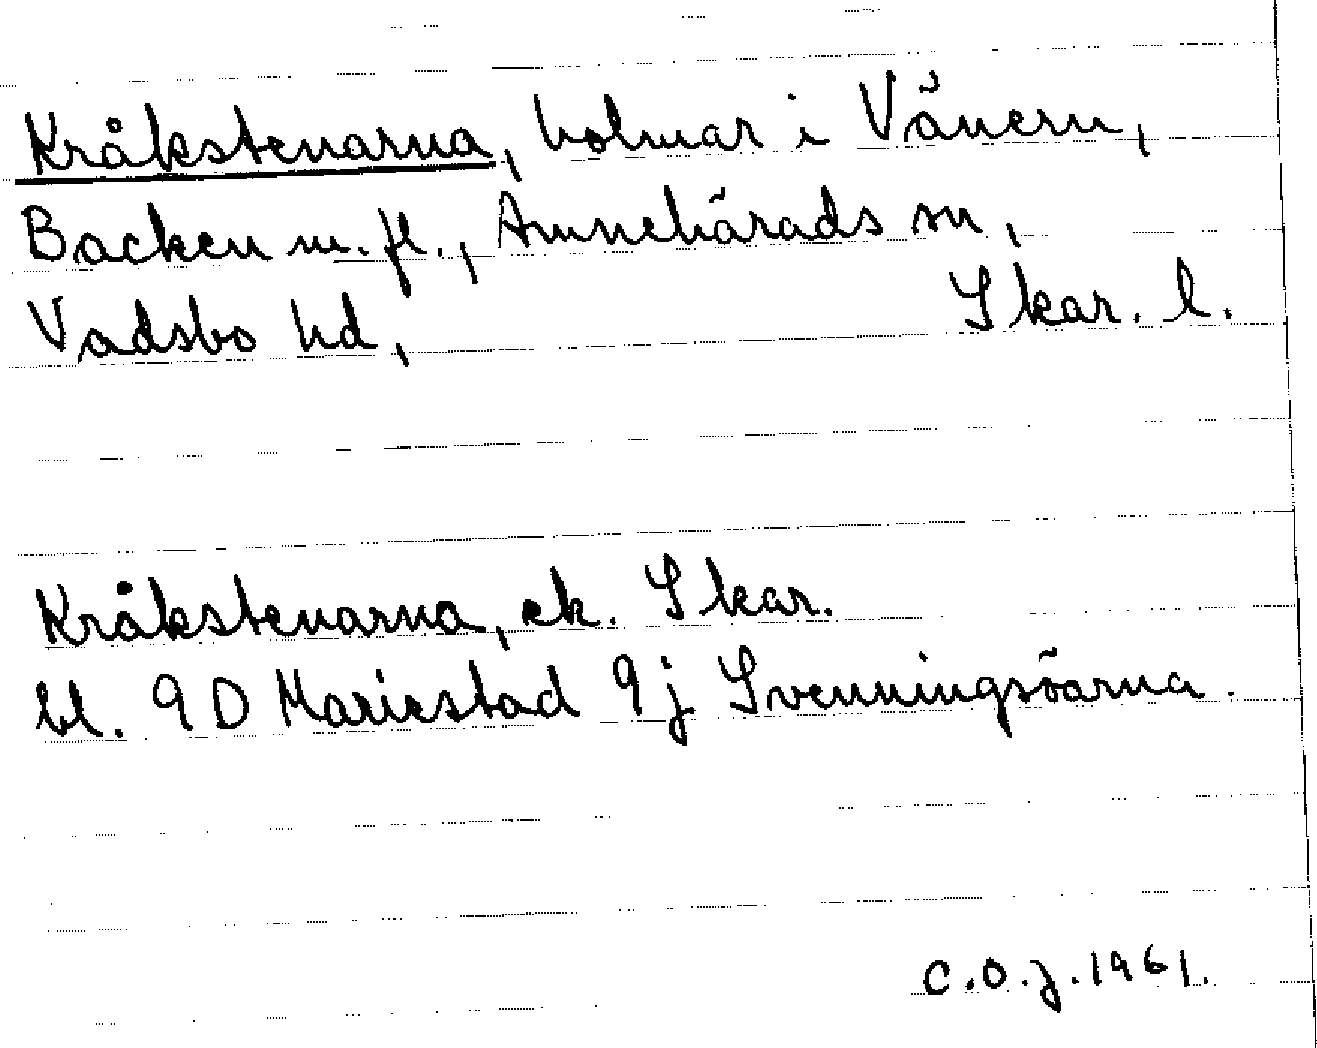 Kråkstenarna, holmar i Vänern,
Backen m.fl., Amnehärads sn,
Vadsbo hd, Skar. l.
Kråkstenarna, ek. Skar.
bl. 9D Mariestad 9j Svenningsöarna.
C.O.J. 1961.